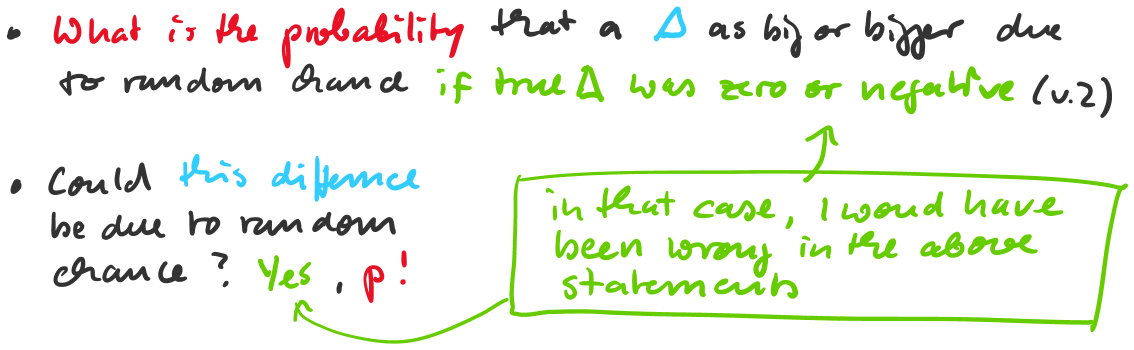 • What is the probability that a Δ as big or bigger due
to random chance if true Δ was zero or negative (v.2)
• Could this difference
be due to random
chance? Yes, p!
in that case, I would have
been wrong in the above
statements